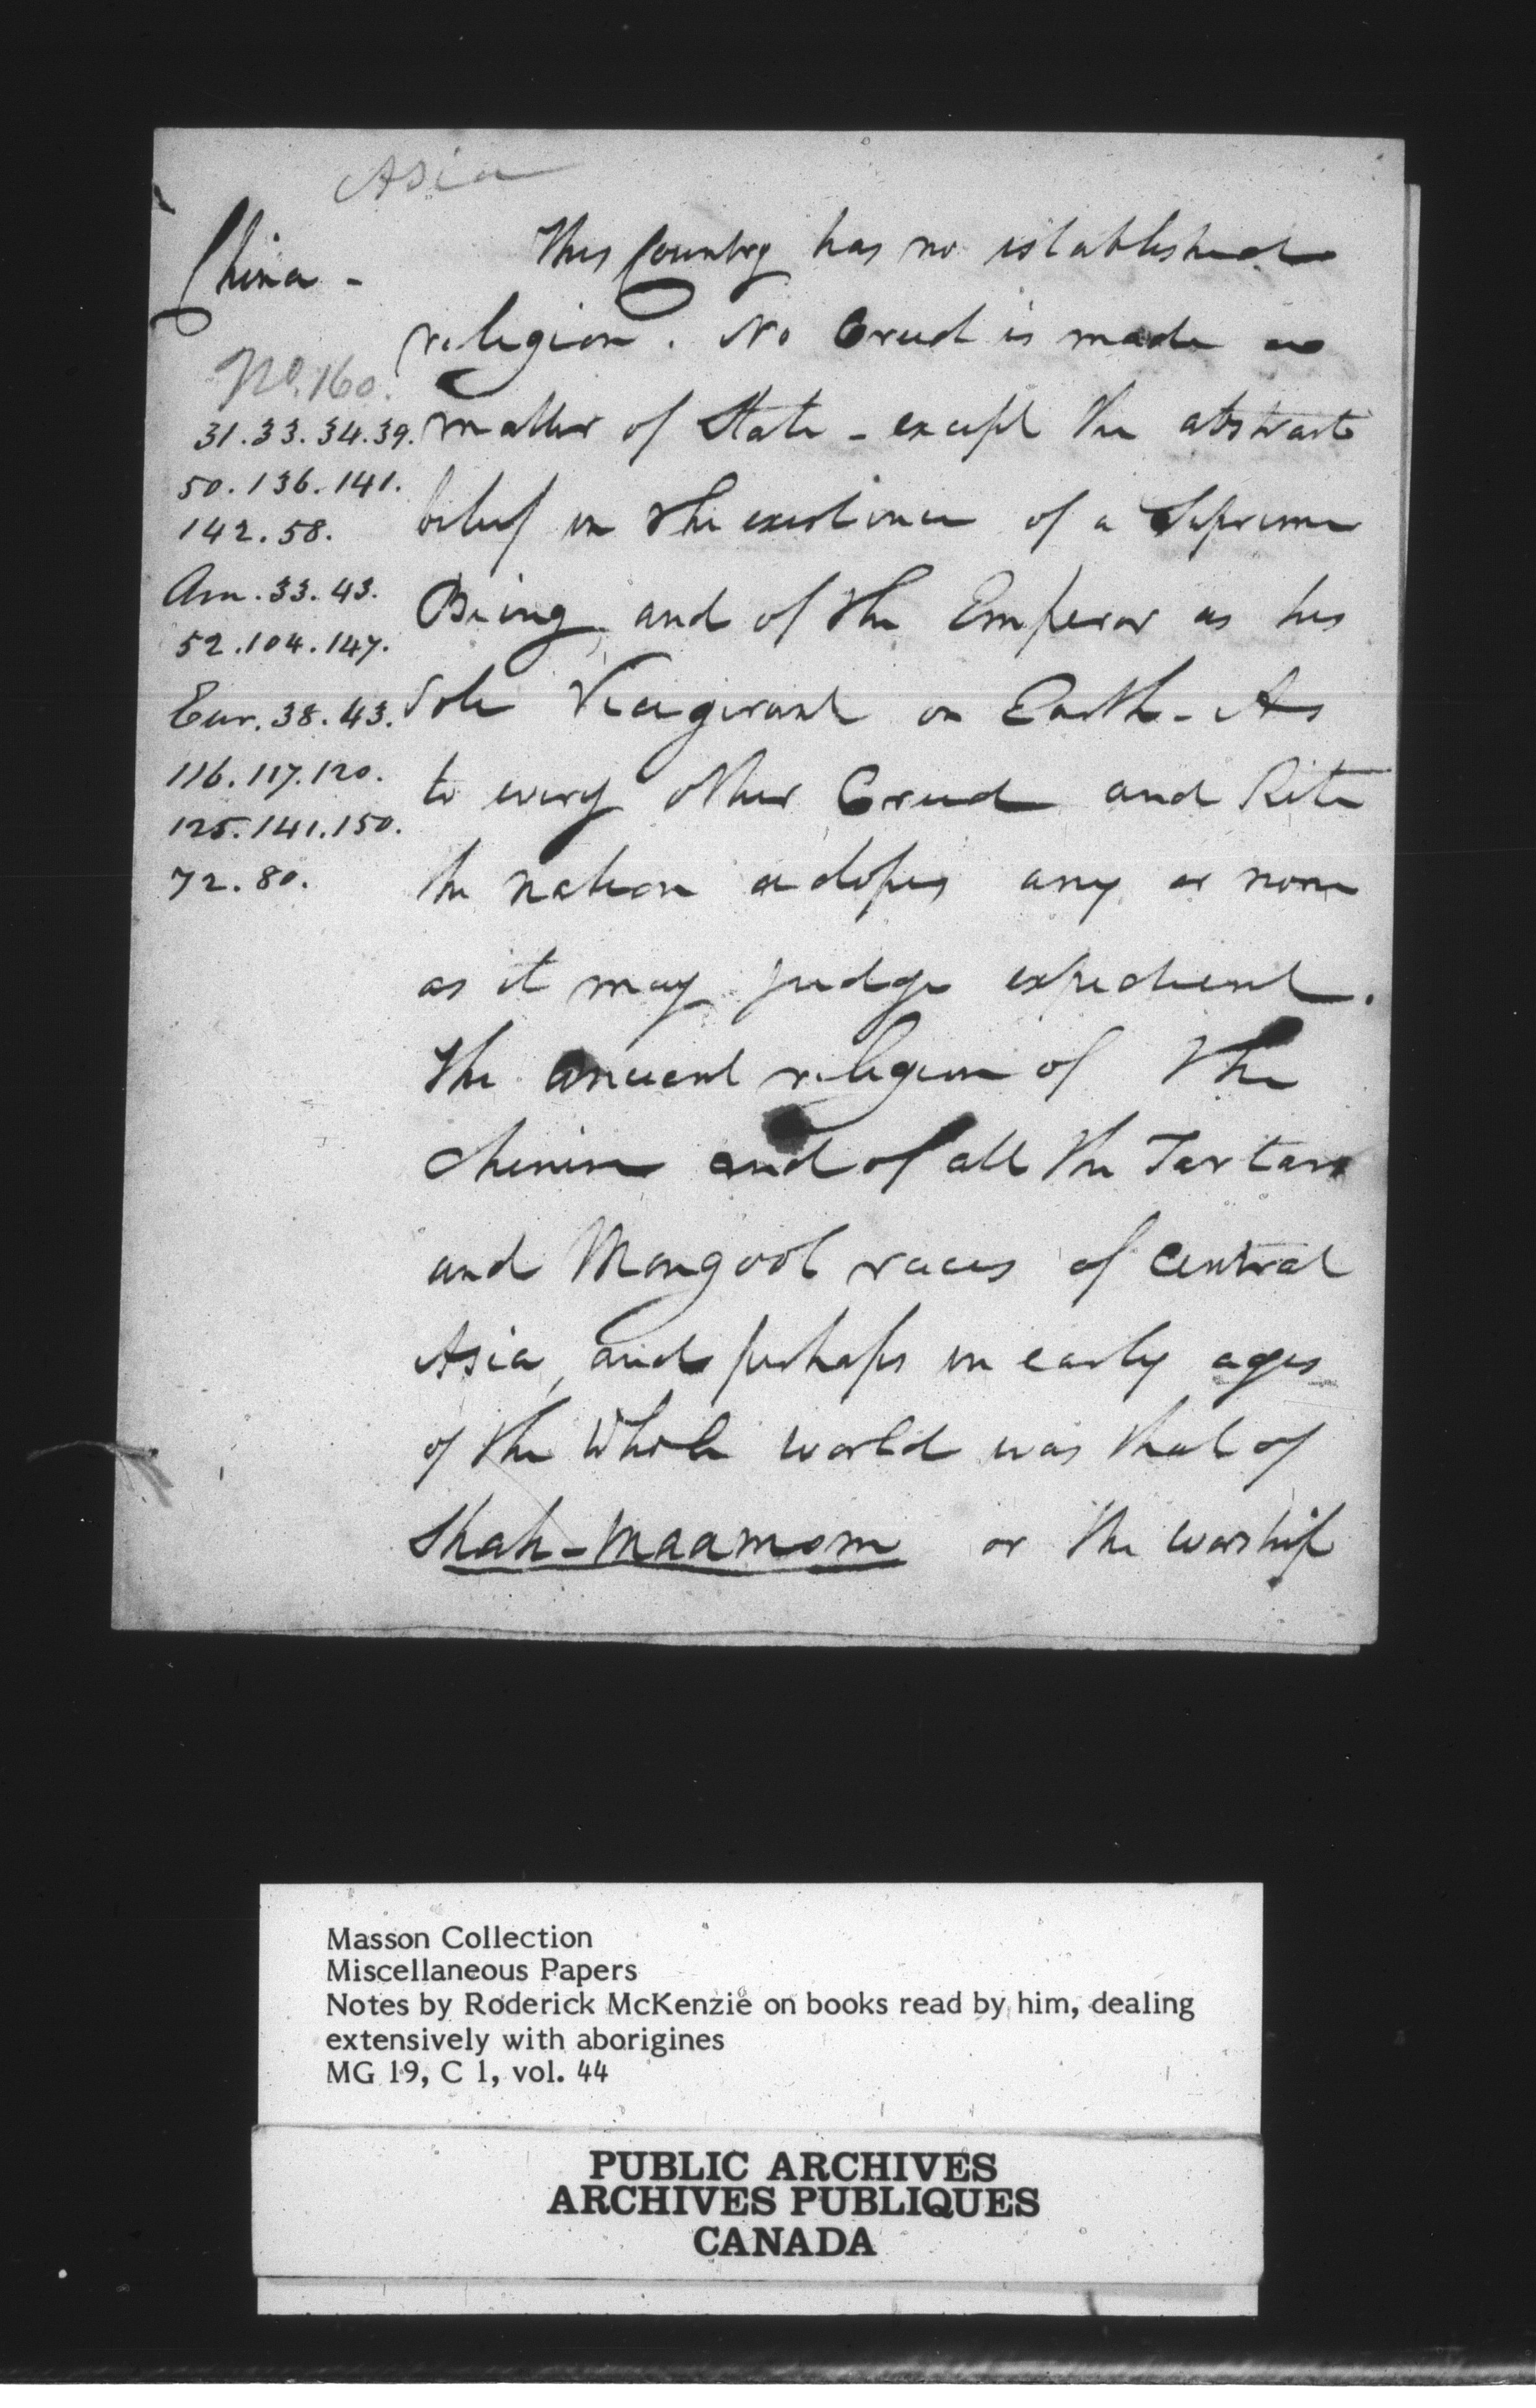 Asia
China -
No. 160.
31.33.34.39.
50.136.141.
142.58.
Am.33.43.
52.104.147.
Eur.38.43.
116.117.120.
125.141.150.
72.80.
This Country has no established
religion. No Creed is made a
matter of State - except the abstract
belief in the existence of a Supreme
Being, and of the Emperor as his
Sole Vicegerant on Earth - As
to every other Creed and Rite
the nation adopts any or none
as it may judge expedient.
The ancient religion of the
Chinese and of all the Tartars
and Mongool races of Central
Asia, and perhaps in early ages
of the Whole world was that of
Shah-Maamom or the worship
Masson Collection
Miscellaneous Papers
Notes by Roderick McKenzie on books read by him, dealing
extensively with aborigines
MG 19, C 1, vol. 44
PUBLIC ARCHIVES
ARCHIVES PUBLIQUES
CANADA